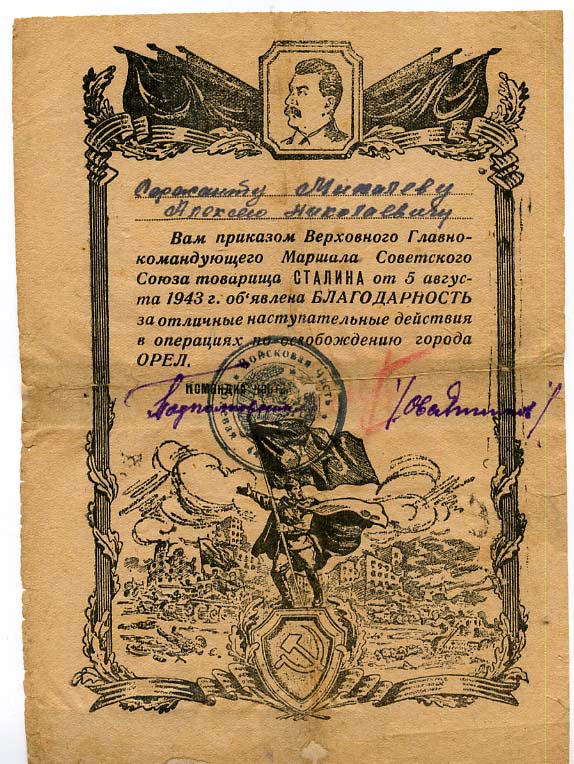 Сержанту Михалеву
Алексею Николаевичу
Вам приказом Верховного Главно-
командующего Маршала Советского
Союза товарища СТАЛИНА от 5 авгус-
та 1943 г. об'явлена БЛАГОДАРНОСТЬ
за отличные наступательные действия
в операциях по освобождению города
ОРЕЛ.
Войсковая Часть
КОМАНДИР ЧАСТИ
Подполковник